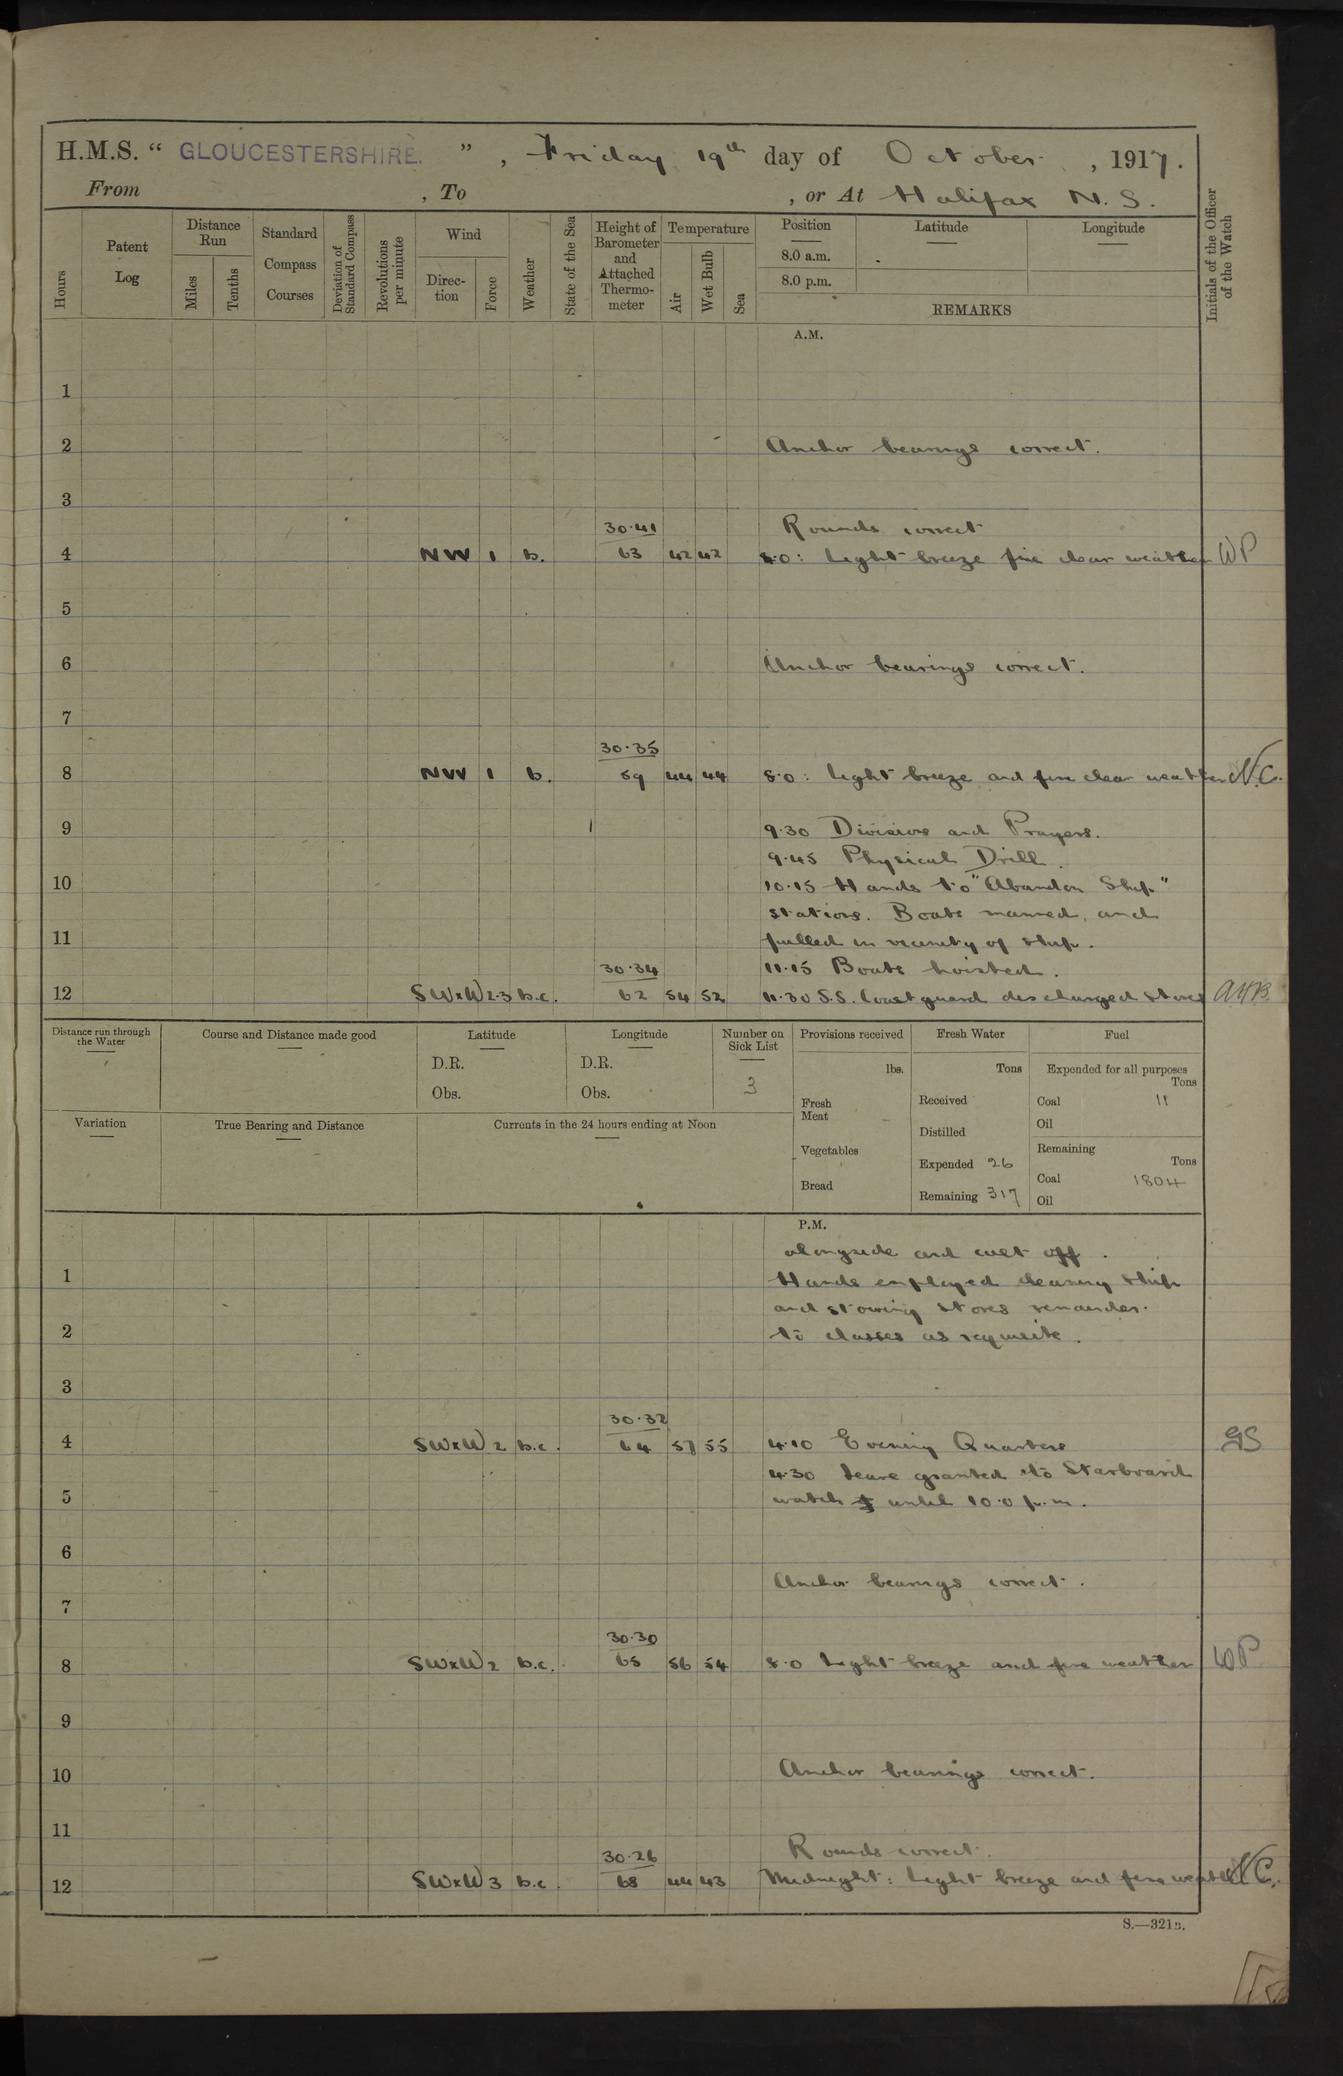 H.M.S. “ GLOUCESTERSHIRE. ” , Friday 19th day of October , 1917.
From , To , or At Halifax N. S.
Hours
Patent Log
Distance Run
Miles
Tenths
Standard Compass Courses
Deviation of Standard Compass
Revolutions per minute
Wind
Direction
Force
Weather
State of the Sea
Height of Barometer and Attached Thermometer
Temperature
Air
Wet Bulb
Sea
Position
8.0 a.m.
8.0 p.m.
Latitude
Longitude
REMARKS
Initials of the Officer of the Watch
A.M.
1
2 Anchor bearings correct.
3
30.41 Rounds correct
4 NW 1 b. 63 42 42 4.0: Light breeze fine clear weather WP
5
6 Anchor bearings correct.
7
30.35
8 NW 1 b. 59 44 44 8.0: Light breeze and fine clear weather N.C.
9 9.30 Divisions and Prayers.
9.45 Physical Drill.
10 10.15 Hands to "Abandon Ship"
stations. Boats manned, and
11 pulled in vicinity of ship.
30.34 11.15 Boats hoisted.
12 SWxW 2.3 b.c. 62 54 52 11.30 S.S. Coastguard discharged stores AHB
Distance run through the Water
Course and Distance made good
Latitude
D.R.
Obs.
Longitude
D.R.
Obs.
Number on Sick List
3
Provisions received
lbs.
Fresh Meat
Vegetables
Bread
Fresh Water
Tons
Received
Distilled
Expended 26
Remaining 317
Fuel
Expended for all purposes
Tons
Coal 11
Oil
Remaining
Tons
Coal 1804
Oil
Variation
True Bearing and Distance
Currents in the 24 hours ending at Noon
P.M.
alongside and cast off.
1 Hands employed cleaning ship
and stowing stores remainder
2 to classes as requisite.
3
30.32
4 SWxW 2 b.c. 64 57 55 4.10 Evening Quarters GS
4.30 Leave granted to Starboard
5 watch until 10.0 p.m.
6
Anchor bearings correct.
7
30.30
8 SWxW 2 b.c. 65 56 54 8.0 Light breeze and fine weather WP
9
10 Anchor bearings correct.
11
30.26 Rounds correct.
12 SWxW 3 b.c. 68 44 43 Midnight: Light breeze and fine weather N.C.
S.—321B.